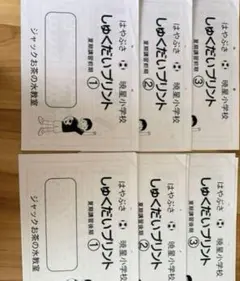 はやぶさ 暁星小学校
しゅくだいプリント
夏期講習前期 ①
ジャックお茶の水教室
はやぶさ 暁星小学校
しゅくだいプリント
夏期講習前期 ②
はやぶさ 暁星小学校
しゅくだいプリント
夏期講習前期 ③
はやぶさ 暁星小学校
しゅくだいプリント
夏期講習後期 ①
ジャックお茶の水教室
はやぶさ 暁星小学校
しゅくだいプリント
夏期講習後期 ②
はやぶさ 暁星小学校
しゅくだいプリント
夏期講習後期 ③